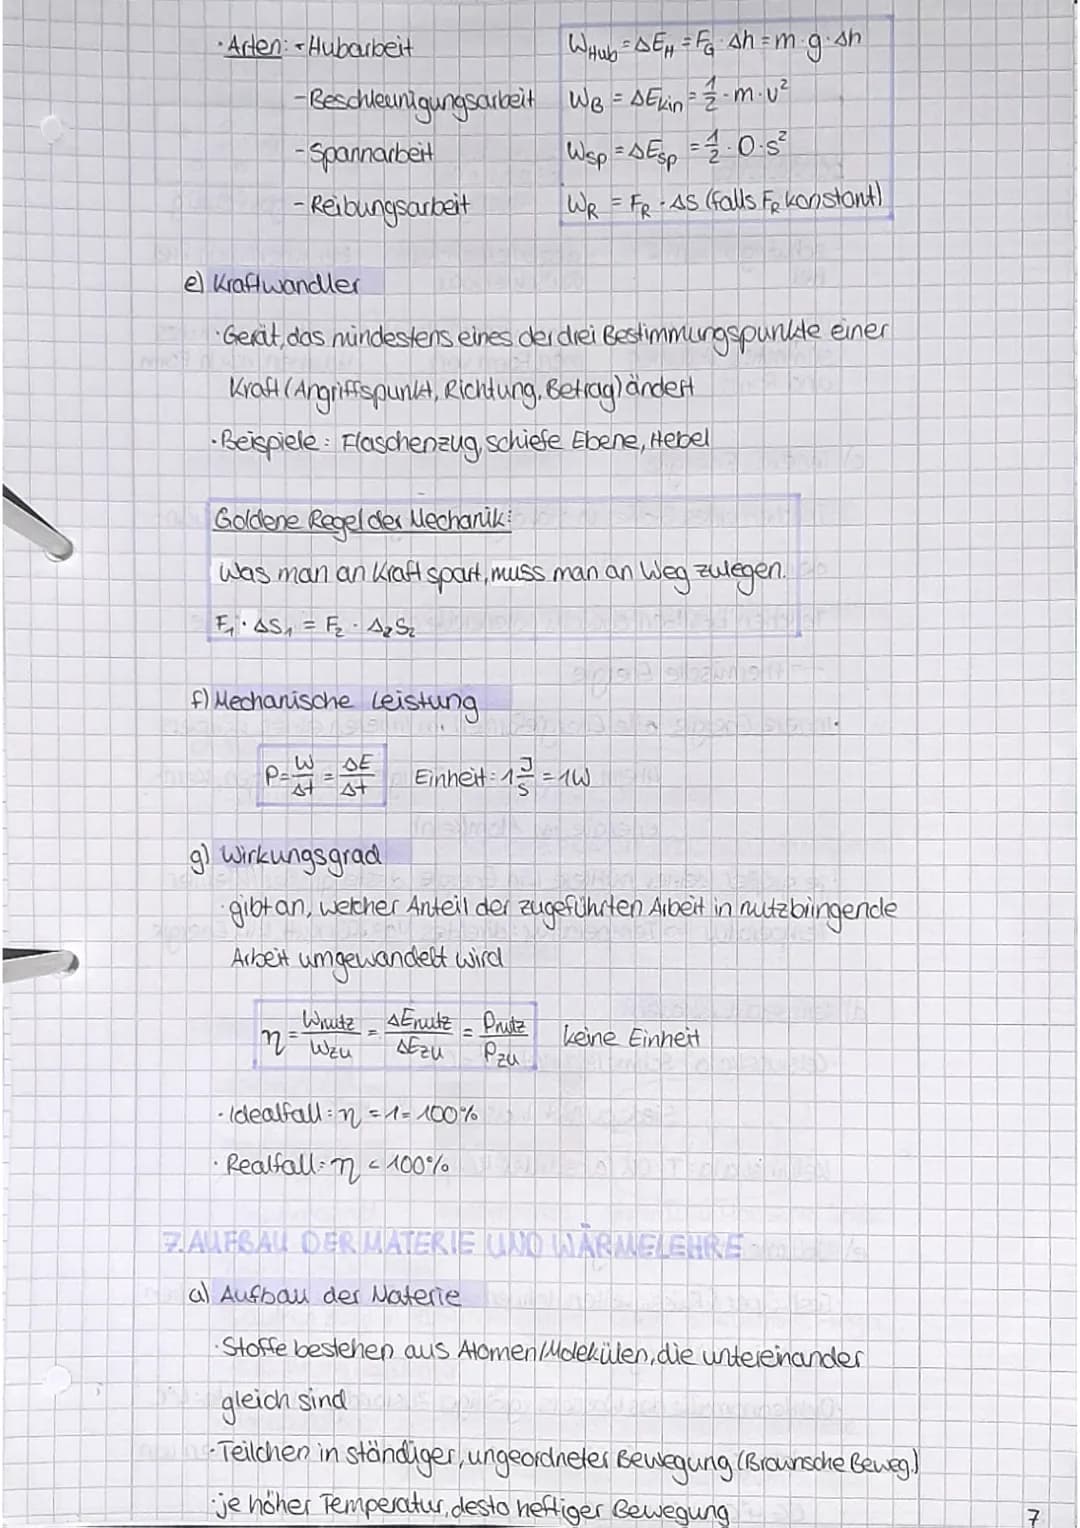 · Arten: - Hubarbeit W_Hub = ΔE_H = F_G · Δh = m · g · Δh
- Beschleunigungsarbeit W_B = ΔE_kin = 1/2 · m · v²
- Spannarbeit W_sp = ΔE_sp = 1/2 · D · s²
- Reibungsarbeit W_R = F_R · Δs (falls F_R konstant)
e) Kraftwandler
· Gerät, das mindestens eines der drei Bestimmungspunkte einer
Kraft (Angriffspunkt, Richtung, Betrag) ändert
· Beispiele: Flaschenzug, schiefe Ebene, Hebel
Goldene Regel der Mechanik:
Was man an Kraft spart, muss man an Weg zulegen.
F₁ · Δs₁ = F₂ · Δ₂s₂
f) Mechanische Leistung
P = W/Δt = ΔE/Δt Einheit: 1 J/s = 1W
g) Wirkungsgrad
· gibt an, welcher Anteil der zugeführten Arbeit in nutzbringende
Arbeit umgewandelt wird
η = W_nutz/W_zu = ΔE_nutz/ΔE_zu = P_nutz/P_zu keine Einheit
· Idealfall: η = 1 = 100%
· Realfall: η < 100%
7. AUFBAU DER MATERIE UND WÄRMELEHRE
a) Aufbau der Materie
· Stoffe bestehen aus Atomen/Molekülen, die untereinander
gleich sind
· Teilchen in ständiger, ungeordneter Bewegung (Brownsche Beweg.)
· je höher Temperatur, desto heftiger Bewegung
7